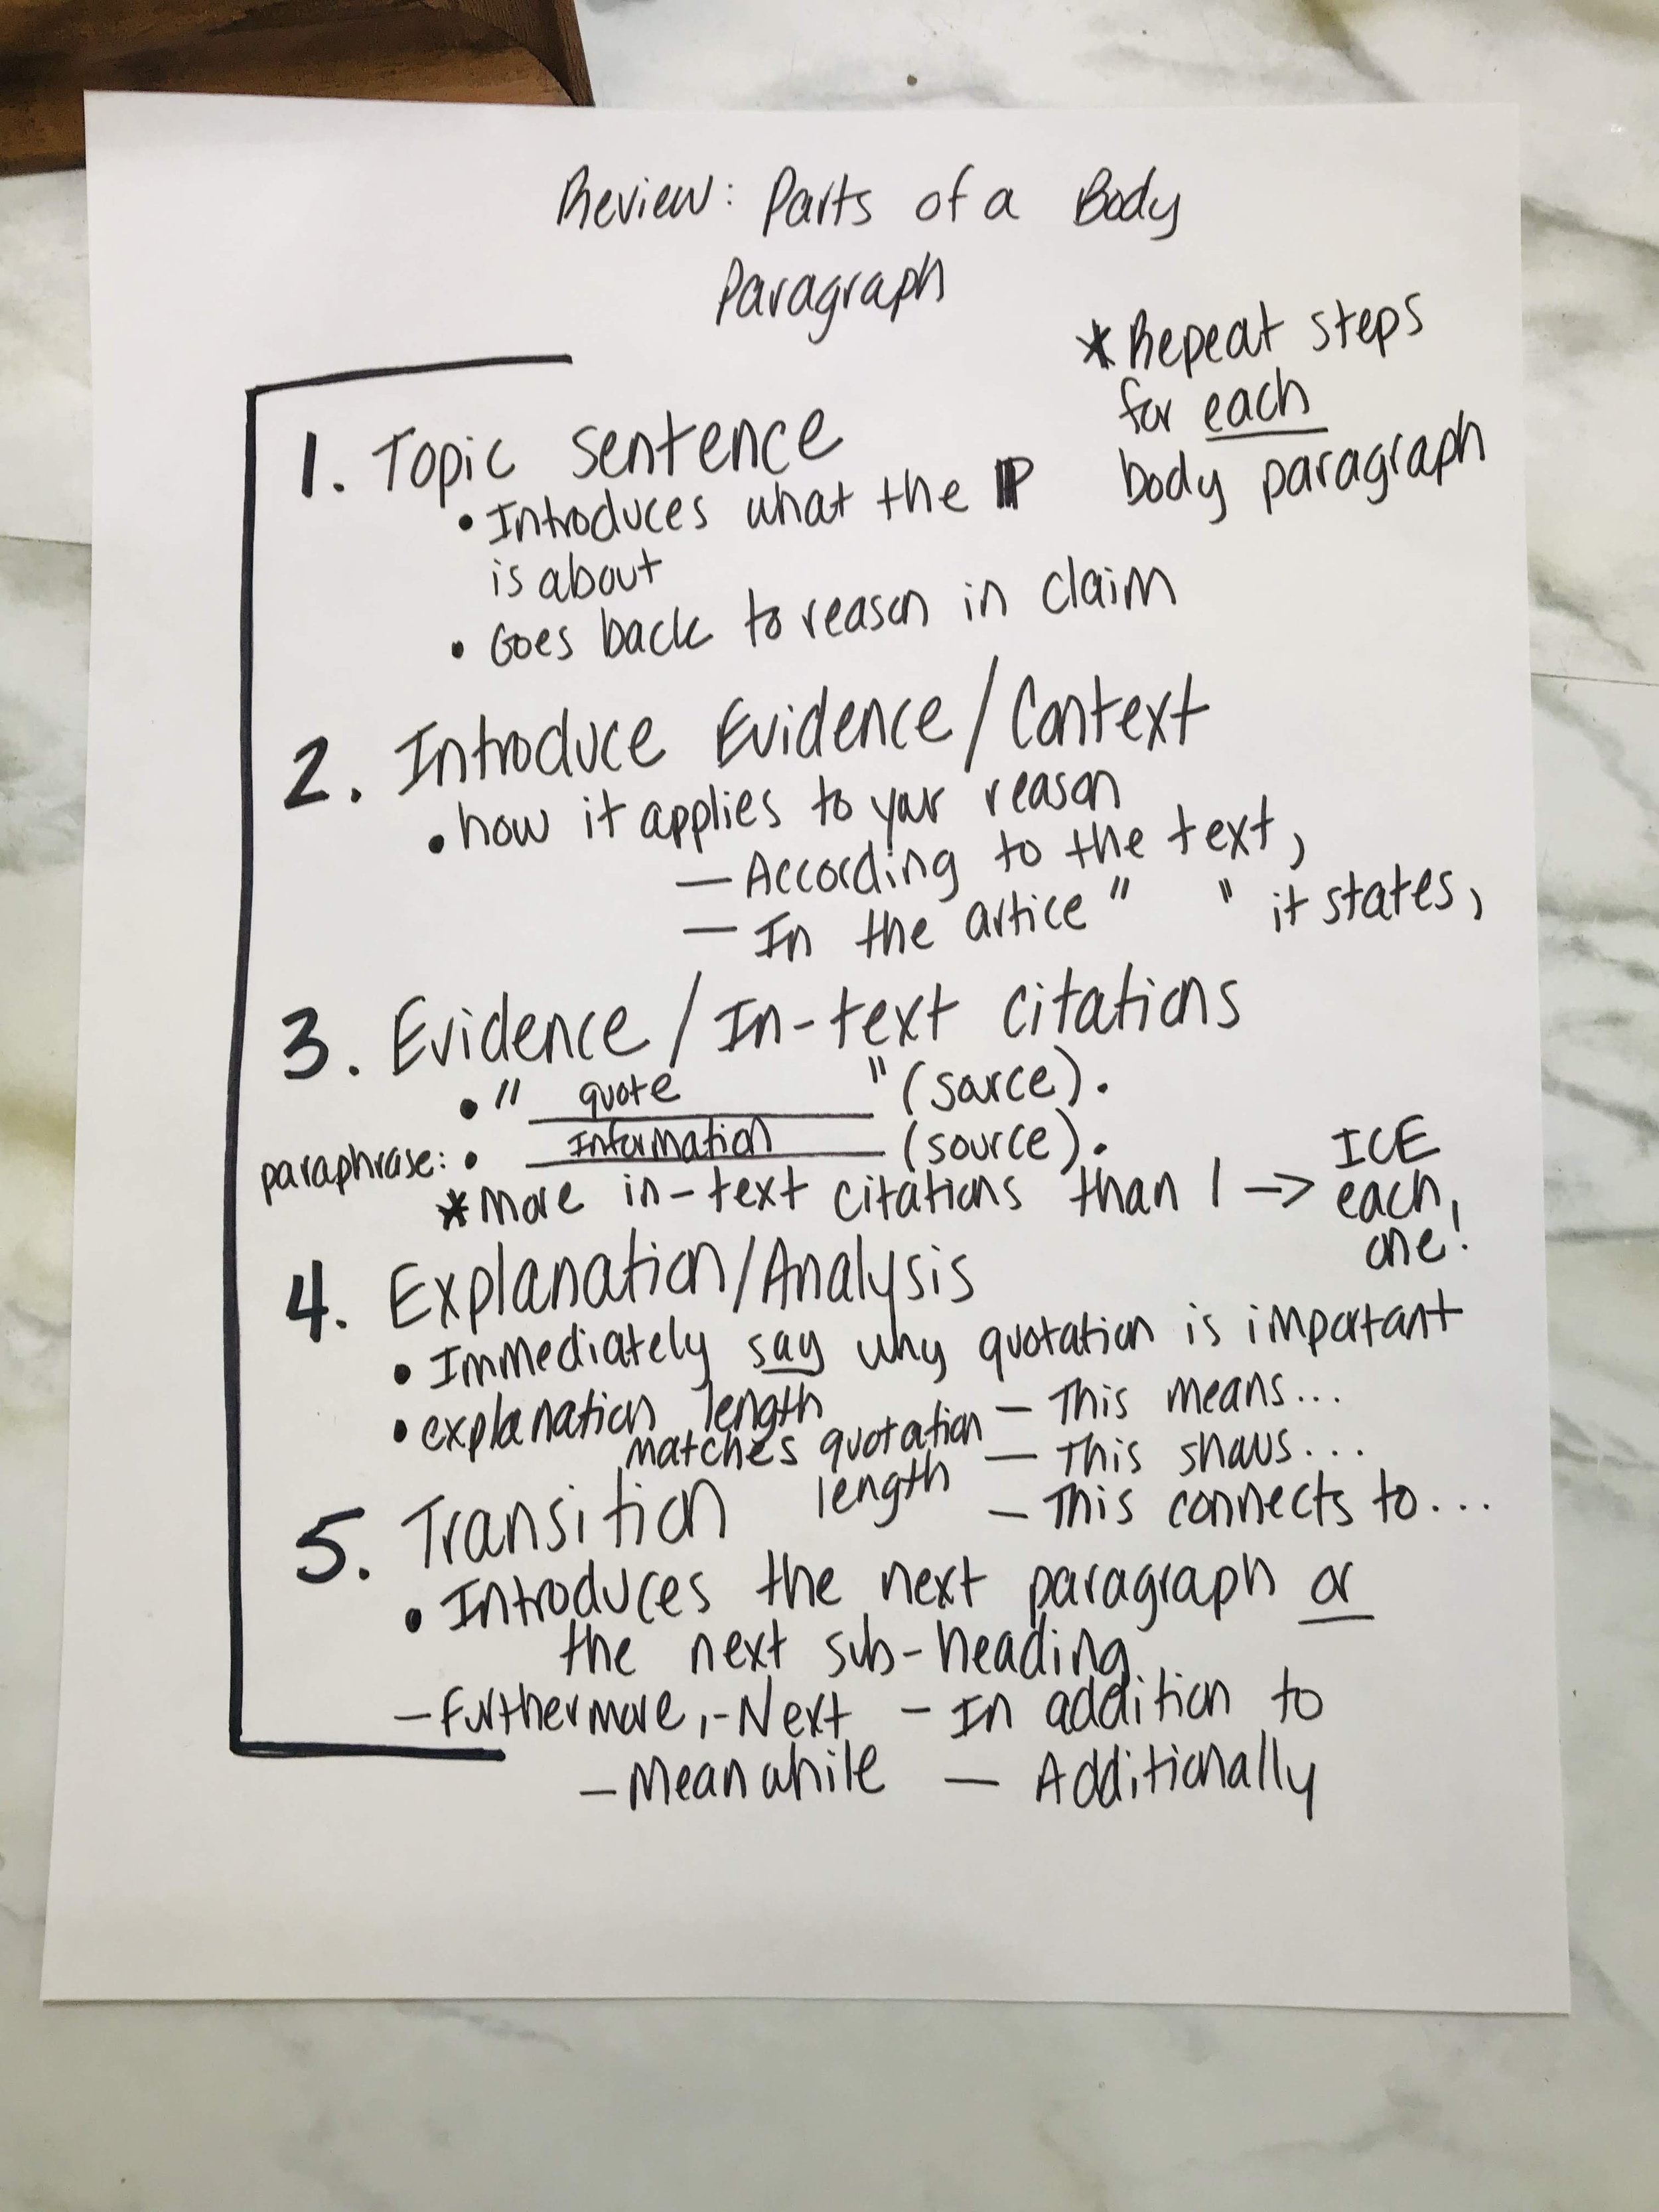 Review: Parts of a Body
Paragraph
* Repeat steps
for each
body paragraph
1. Topic sentence
• Introduces what the P
is about
• Goes back to reason in claim
2. Introduce Evidence/Context
• how it applies to your reason
— According to the text,
— In the artice " " it states,
3. Evidence/In-text citations
• " quote " (source).
paraphrase: • Information (source).
* More in-text citations than 1 -> ICE
each
one!
4. Explanation/Analysis
• Immediately say why quotation is important
• explanation length
matches quotation
length
— This means...
— This shows...
— This connects to...
5. Transition
• Introduces the next paragraph or
the next sub-heading
— Furthermore, - Next — In addition to
— Meanwhile — Additionally